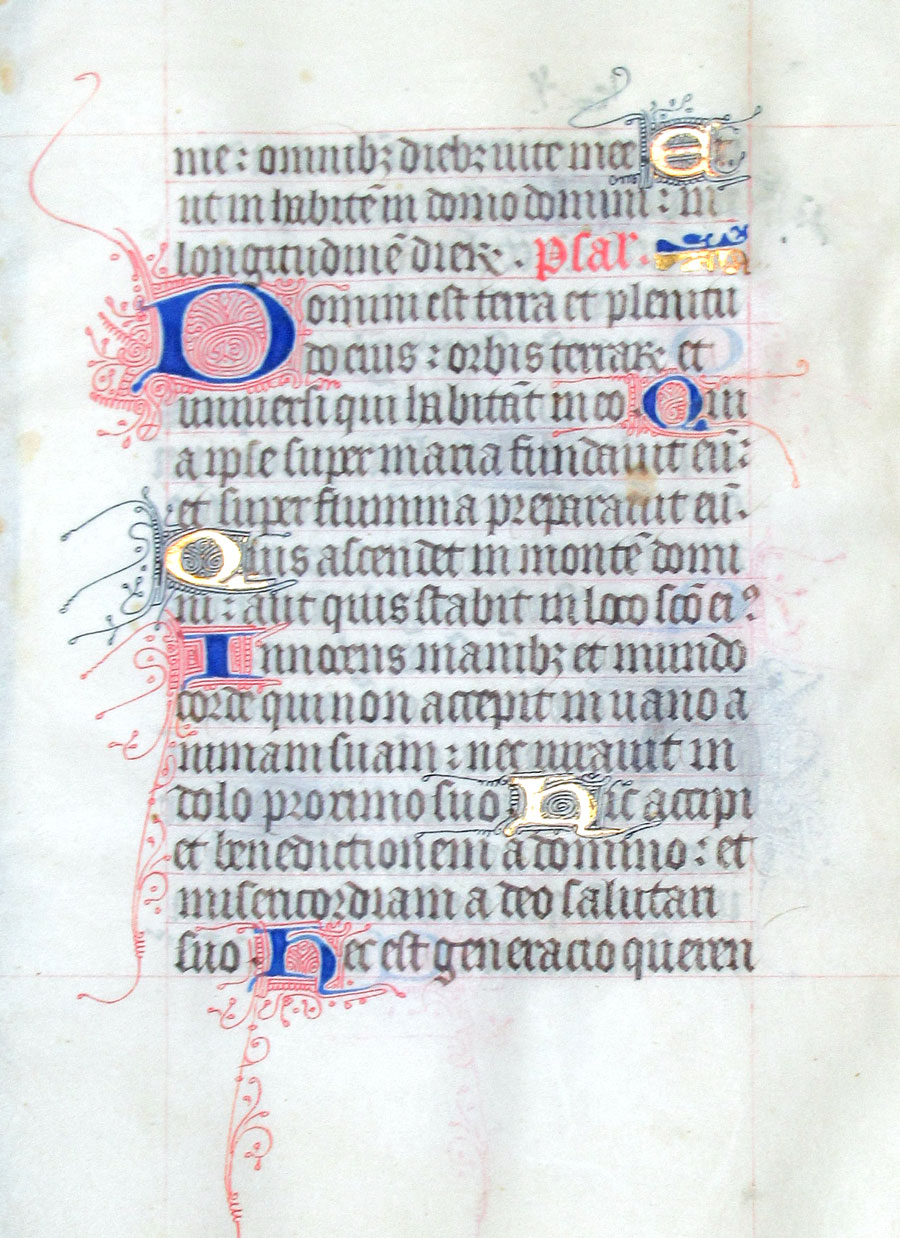 me : omnibꝫ diebꝫ uite mee Et
ut inhabitē in domo domini : in
longitudinē dierꝝ . psal .
Domini est terra et plenitu
do eius : orbis terrarꝝ et
uniuersi qui habitāt in eo Qui
a ipse super maria fundauit eū :
et super flumina preparauit eū .
Quis ascendet in montē domi
ni : aut quis stabit in loco scō eiꝰ
Innocens manibꝫ et mundo
corde qui non accepit in uano a
nimam suam : nec iurauit in
dolo proximo suo Hic accipi
et benedictionem a domino : et
misericordiam a deo salutari
suo . Hec est generacio queren